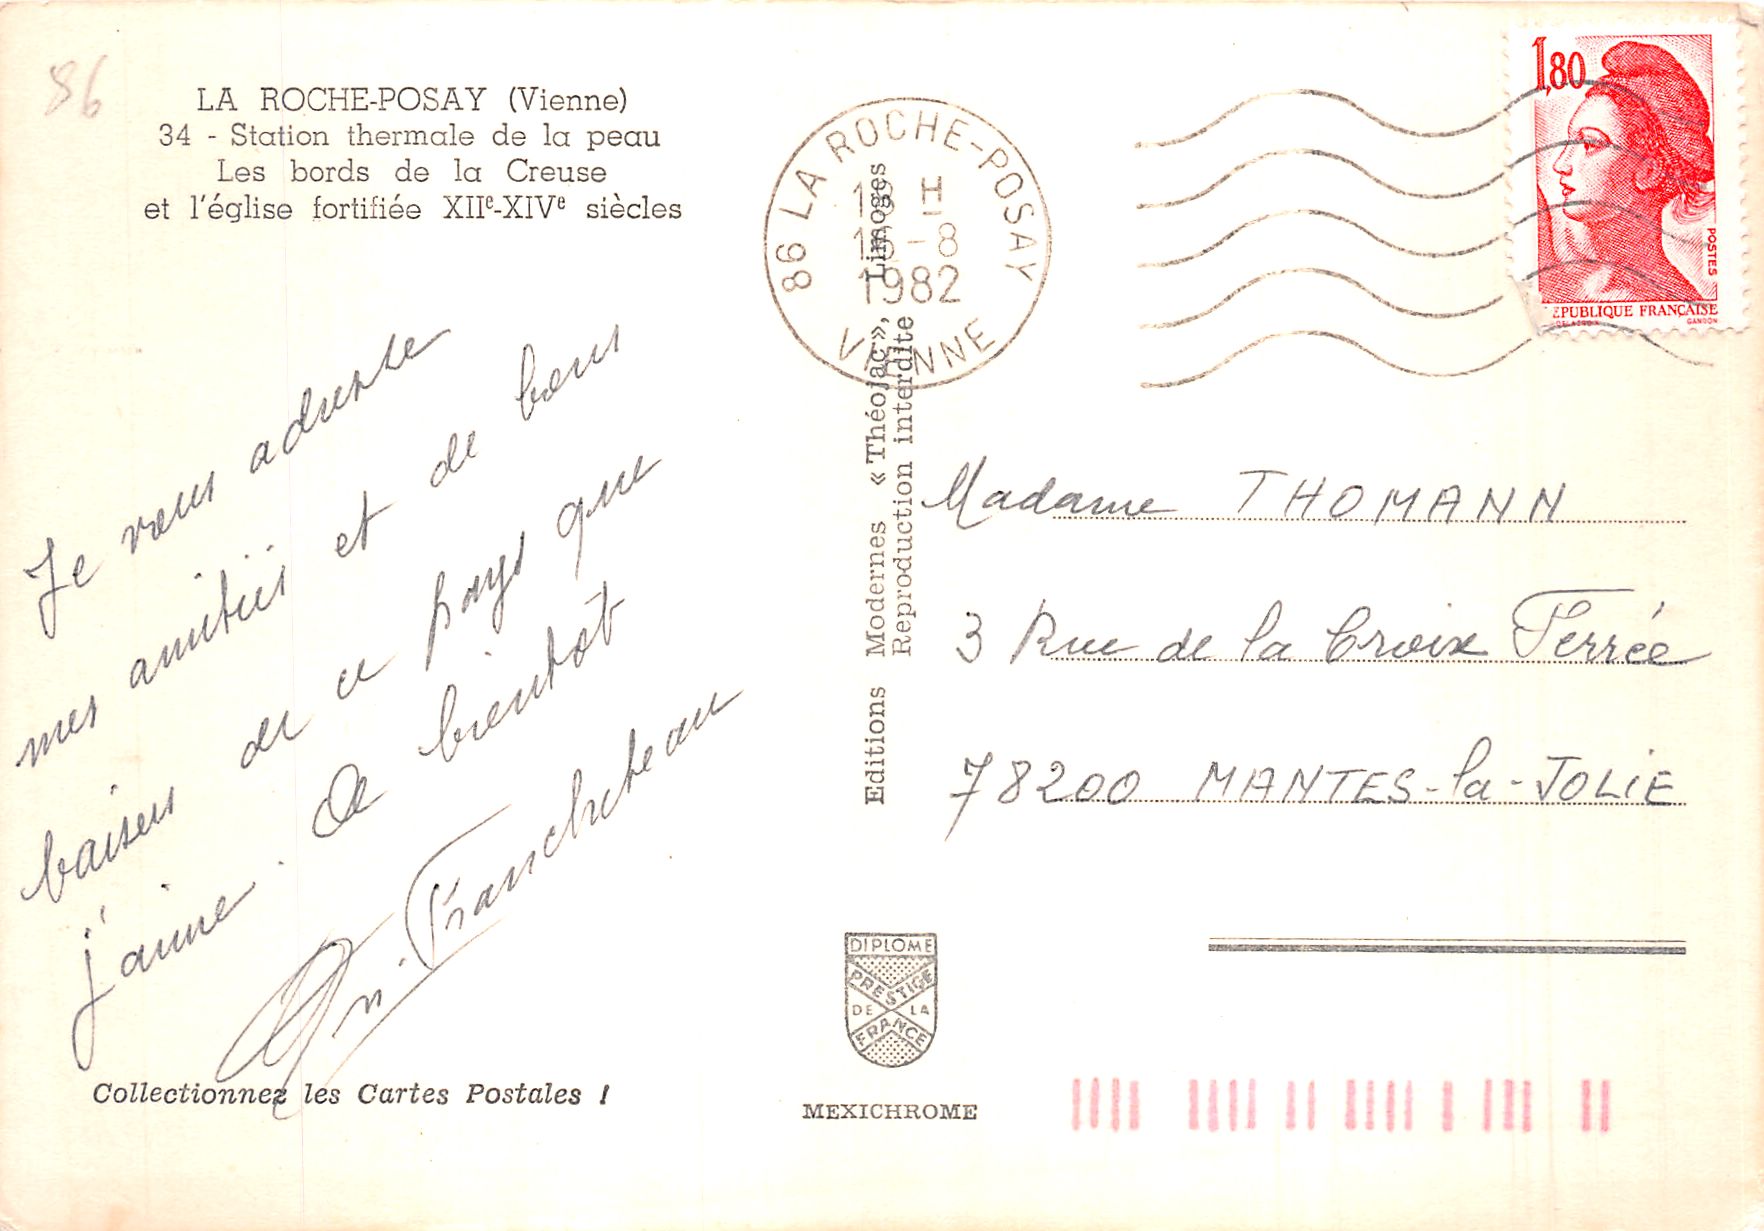 86
LA ROCHE-POSAY (Vienne)
34 - Station thermale de la peau
Les bords de la Creuse
et l'église fortifiée XIIe-XIVe siècles
Je vous adresse
mes amitiés et de bons
baisers de ce pays que
j'aime. A bientôt
Francheteau
Collectionnez les Cartes Postales !
Editions Modernes « Théojac », Limoges
Reproduction interdite
86 LA ROCHE-POSAY
H
-8
1982
VIENNE
1,80
POSTES
EPUBLIQUE FRANÇAISE
DELACROIX GANDON
Madame THOMANN
3 Rue de la Croix Ferrée
78200 MANTES-la-JOLIE
DIPLOME
PRESTIGE
DE LA
FRANCE
MEXICHROME